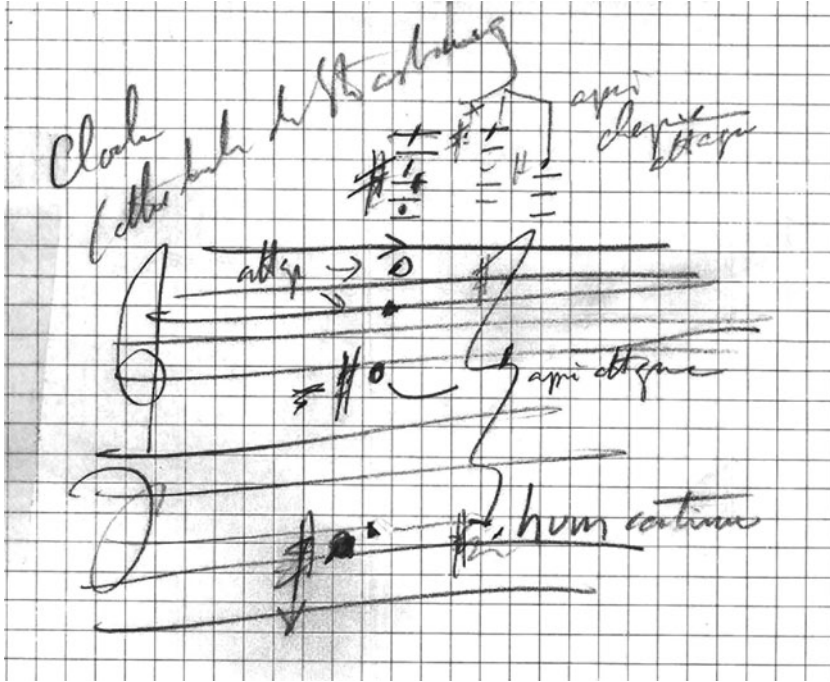 Cloche
Cathédrale de Strasbourg
après
attaque
attaq
après attaque
hum continue